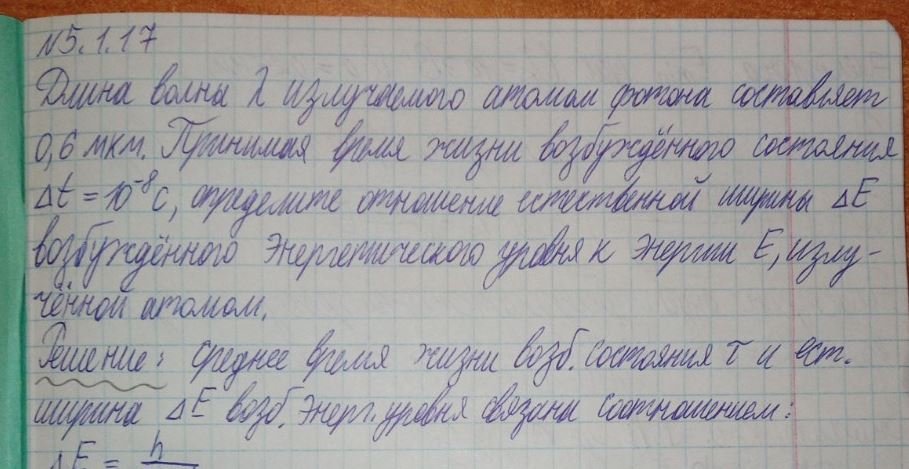 №5.1.17
Длина волны λ излучаемого атомом фотона составляет
0,6 мкм. Принимая время жизни возбуждённого состояния
Δt = 10⁻⁸ с, определите отношение естественной ширины ΔE
возбуждённого энергетического уровня к энергии E, излу-
чённой атомом.
Решение: среднее время жизни возб. состояния τ и ест.
ширина ΔE возб. энерг. уровня связаны соотношением:
ΔE = h